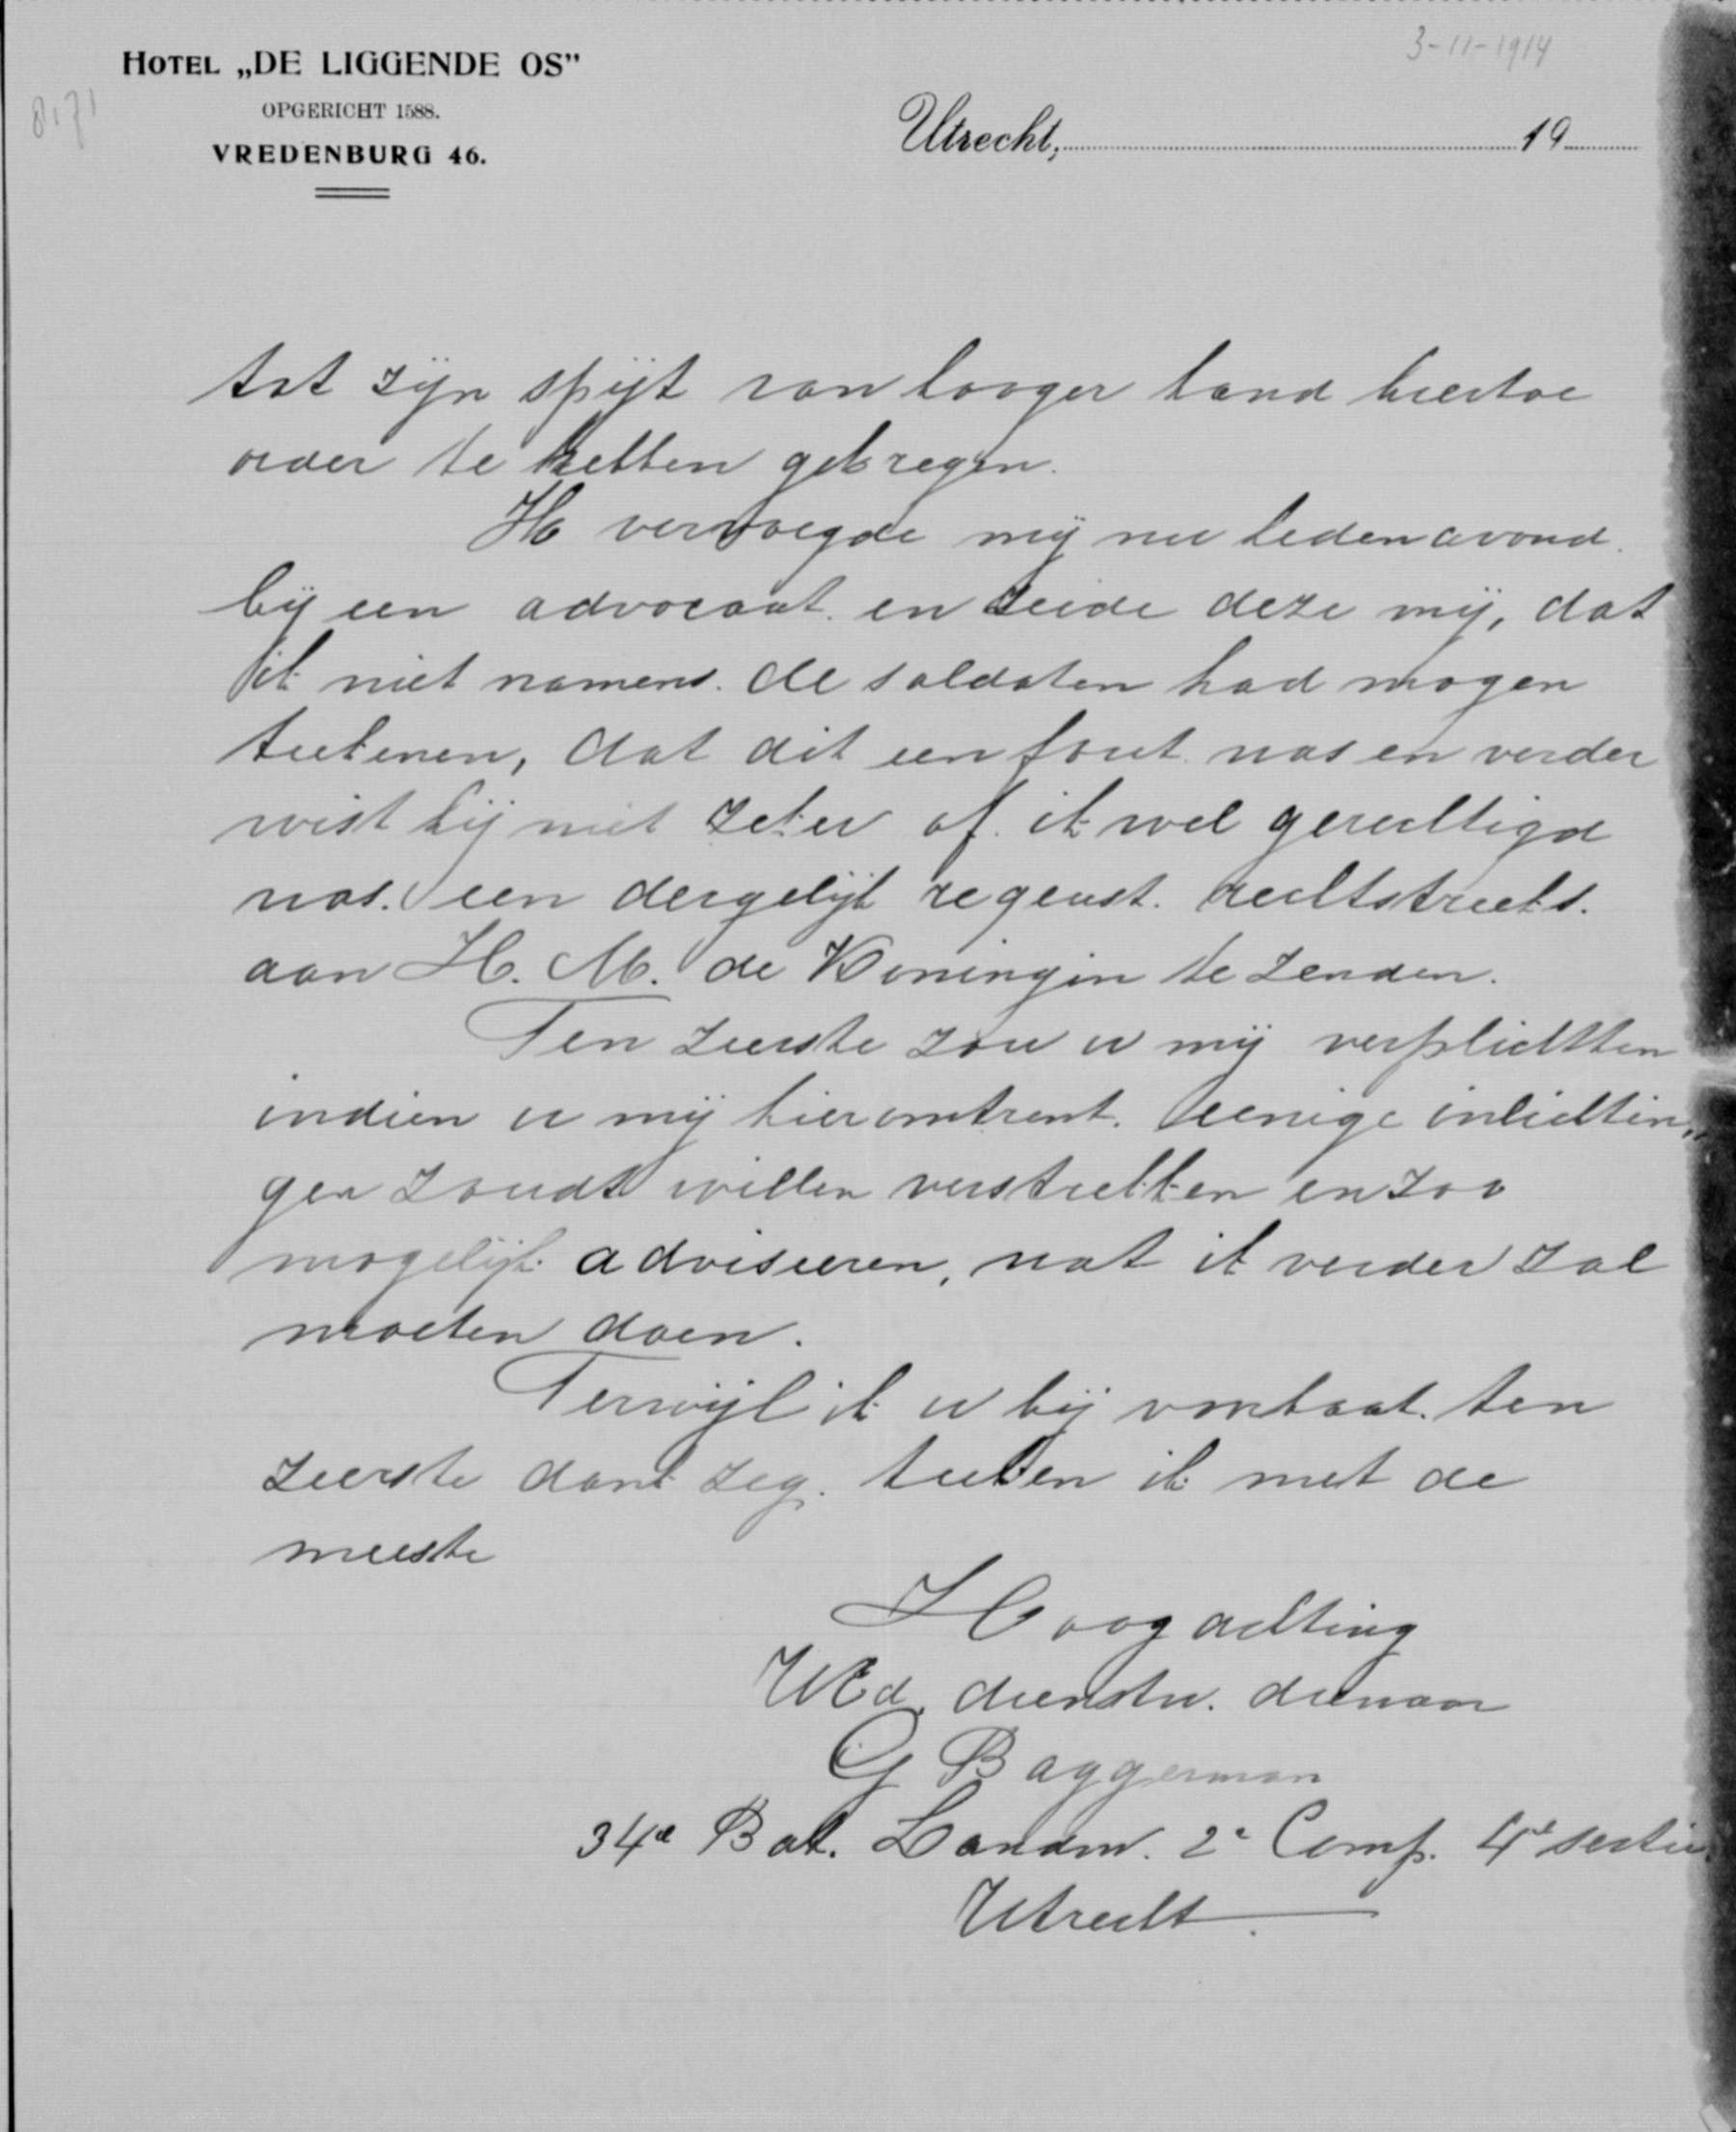 3-11-1914
HOTEL „DE LIGGENDE OS”
OPGERICHT 1588.
VREDENBURG 46.
Utrecht, 19
tot zijn spijt van hooger hand hiertoe
order te hebben gekregen.
Ik vervoegde mij nu hedenavond
bij een advocaat en zeide deze mij, dat
ik niet namens de soldaten had mogen
teekenen, dat dit een fout was en verder
wist hij niet zeker of ik wel gerechtigd
was een dergelijk request rechtstreeks
aan H. M. de Koningin te zenden.
Ten zeerste zou u mij verplichten
indien u mij hieromtrent eenige inlichtin„
gen zoudt willen verstrekken en zoo
mogelijk adviseeren, wat ik verder zal
moeten doen.
Terwijl ik u bij voorbaat ten
zeerste dank zeg. teeken ik met de
meeste
Hoogachting
UEd. dienstw. dienaar
G Baggerman
34e Bat. Landw. 2e Comp. 4e sectie.
Utrecht.